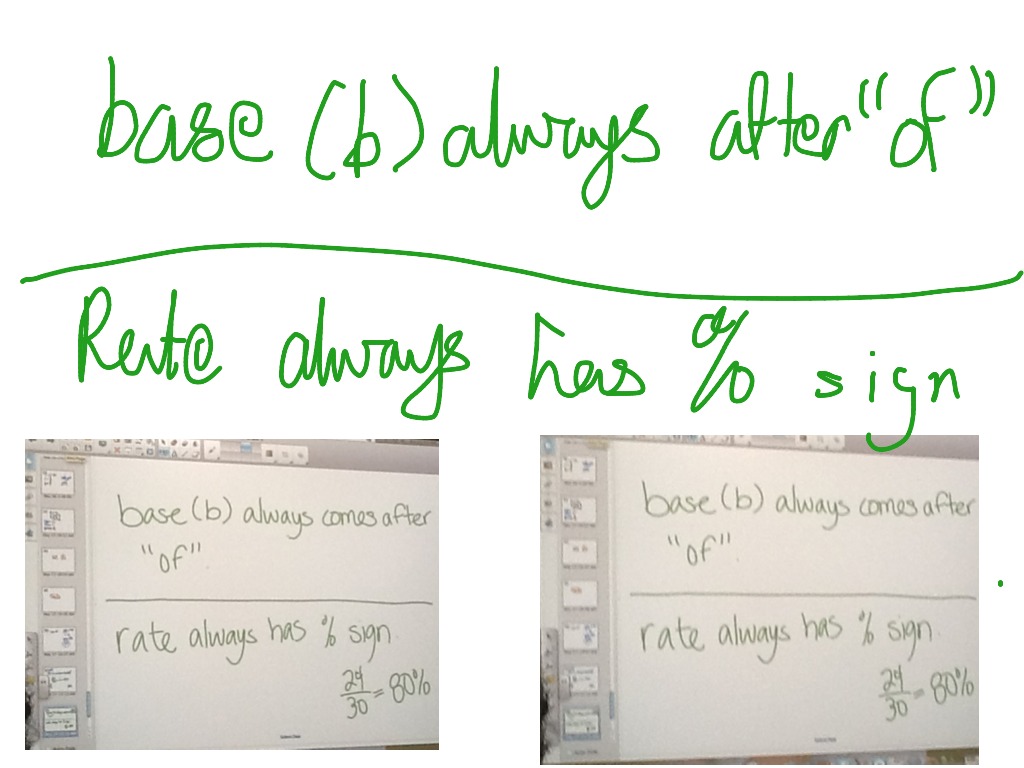 base (b) always after "of"
Rate always has % sign
base (b) always comes after
"of".
rate always has % sign.
24/30 = 80%
base (b) always comes after
"of".
rate always has % sign.
24/30 = 80%